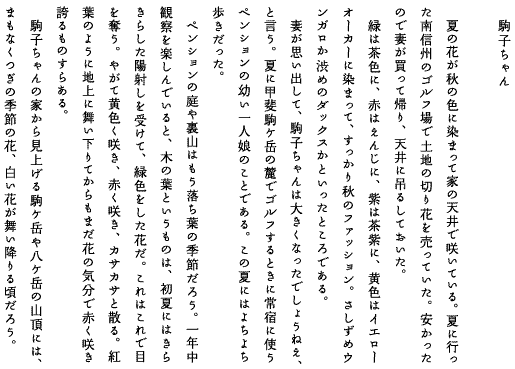 駒子ちゃん
　夏の花が秋の色に染まって家の天井で咲いている。夏に行っ
た南信州のゴルフ場で土地の切り花を売っていた。安かった
ので妻が買って帰り、天井に吊るしておいた。
　緑は茶色に、赤はえんじに、紫は茶紫に、黄色はイエロー
オーカーに染まって、すっかり秋のファッション。さしずめウ
ンガロか渋めのダックスかといったところである。
　妻が思い出して、駒子ちゃんは大きくなったでしょうねえ、
と言う。夏に甲斐駒ケ岳の麓でゴルフするときに常宿に使う
ペンションの幼い一人娘のことである。この夏にはよちよち
歩きだった。
　ペンションの庭や裏山はもう落ち葉の季節だろう。一年中
観察を楽しんでいると、木の葉というものは、初夏にはきら
きらした陽射しを受けて、緑色をした花だ。これはこれで目
を奪う。やがて黄色く咲き、赤く咲き、カサカサと散る。紅
葉のように地上に舞い下りてからもまだ花の気分で赤く咲き
誇るものすらある。
　駒子ちゃんの家から見上げる駒ケ岳や八ケ岳の山頂には、
まもなくつぎの季節の花、白い花が舞い降りる頃だろう。